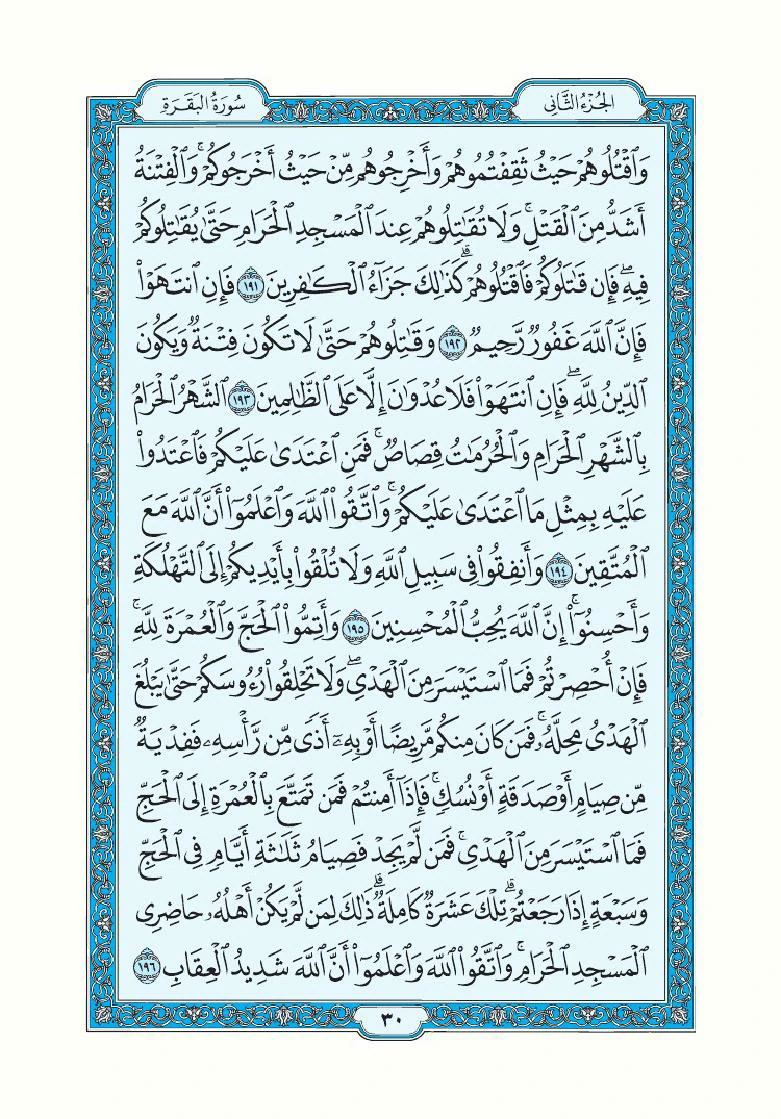 الجزء الثاني
سورة البقرة
وَٱقْتُلُوهُمْ حَيْثُ ثَقِفْتُمُوهُمْ وَأَخْرِجُوهُم مِّنْ حَيْثُ أَخْرَجُوكُمْ ۚ وَٱلْفِتْنَةُ
أَشَدُّ مِنَ ٱلْقَتْلِ ۚ وَلَا تُقَـٰتِلُوهُمْ عِندَ ٱلْمَسْجِدِ ٱلْحَرَامِ حَتَّىٰ يُقَـٰتِلُوكُمْ
فِيهِ ۖ فَإِن قَـٰتَلُوكُمْ فَٱقْتُلُوهُمْ ۗ كَذَٰلِكَ جَزَآءُ ٱلْكَـٰفِرِينَ ١٩١ فَإِنِ ٱنتَهَوْا۟
فَإِنَّ ٱللَّهَ غَفُورٌ رَّحِيمٌ ١٩٢ وَقَـٰتِلُوهُمْ حَتَّىٰ لَا تَكُونَ فِتْنَةٌ وَيَكُونَ
ٱلدِّينُ لِلَّهِ ۖ فَإِنِ ٱنتَهَوْا۟ فَلَا عُدْوَٰنَ إِلَّا عَلَى ٱلظَّـٰلِمِينَ ١٩٣ ٱلشَّهْرُ ٱلْحَرَامُ
بِٱلشَّهْرِ ٱلْحَرَامِ وَٱلْحُرُمَـٰتُ قِصَاصٌ ۚ فَمَنِ ٱعْتَدَىٰ عَلَيْكُمْ فَٱعْتَدُوا۟
عَلَيْهِ بِمِثْلِ مَا ٱعْتَدَىٰ عَلَيْكُمْ ۚ وَٱتَّقُوا۟ ٱللَّهَ وَٱعْلَمُوٓا۟ أَنَّ ٱللَّهَ مَعَ
ٱلْمُتَّقِينَ ١٩٤ وَأَنفِقُوا۟ فِى سَبِيلِ ٱللَّهِ وَلَا تُلْقُوا۟ بِأَيْدِيكُمْ إِلَى ٱلتَّهْلُكَةِ
وَأَحْسِنُوٓا۟ ۛ إِنَّ ٱللَّهَ يُحِبُّ ٱلْمُحْسِنِينَ ١٩٥ وَأَتِمُّوا۟ ٱلْحَجَّ وَٱلْعُمْرَةَ لِلَّهِ ۚ
فَإِنْ أُحْصِرْتُمْ فَمَا ٱسْتَيْسَرَ مِنَ ٱلْهَدْىِ ۖ وَلَا تَحْلِقُوا۟ رُءُوسَكُمْ حَتَّىٰ يَبْلُغَ
ٱلْهَدْىُ مَحِلَّهُۥ ۚ فَمَن كَانَ مِنكُم مَّرِيضًا أَوْ بِهِۦٓ أَذًى مِّن رَّأْسِهِۦ فَفِدْيَةٌ
مِّن صِيَامٍ أَوْ صَدَقَةٍ أَوْ نُسُكٍ ۚ فَإِذَآ أَمِنتُمْ فَمَن تَمَتَّعَ بِٱلْعُمْرَةِ إِلَى ٱلْحَجِّ
فَمَا ٱسْتَيْسَرَ مِنَ ٱلْهَدْىِ ۚ فَمَن لَّمْ يَجِدْ فَصِيَامُ ثَلَـٰثَةِ أَيَّامٍ فِى ٱلْحَجِّ
وَسَبْعَةٍ إِذَا رَجَعْتُمْ ۗ تِلْكَ عَشَرَةٌ كَامِلَةٌ ۗ ذَٰلِكَ لِمَن لَّمْ يَكُنْ أَهْلُهُۥ حَاضِرِى
ٱلْمَسْجِدِ ٱلْحَرَامِ ۚ وَٱتَّقُوا۟ ٱللَّهَ وَٱعْلَمُوٓا۟ أَنَّ ٱللَّهَ شَدِيدُ ٱلْعِقَابِ ١٩٦
٣٠